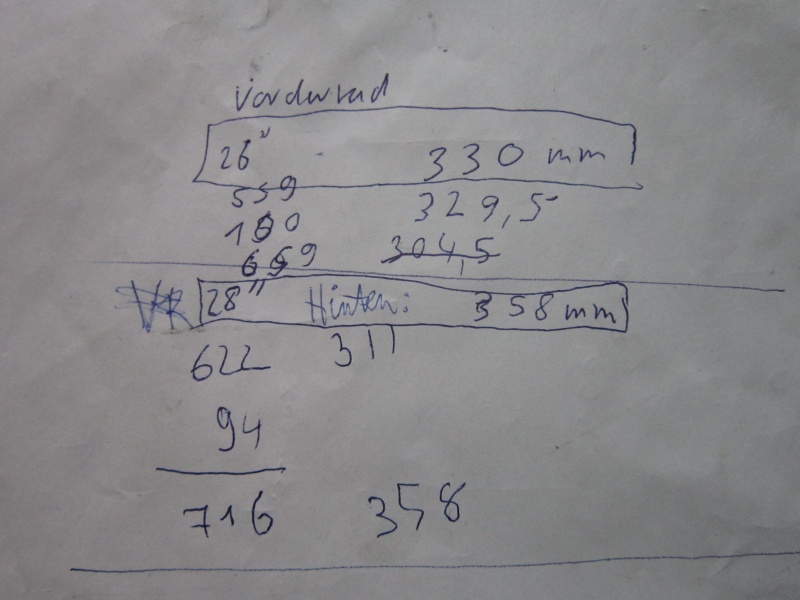 Vorderrad
26" 330 mm
559 329,5
100 304,5
659
28" Hinten: 358 mm
622 311
94
716 358